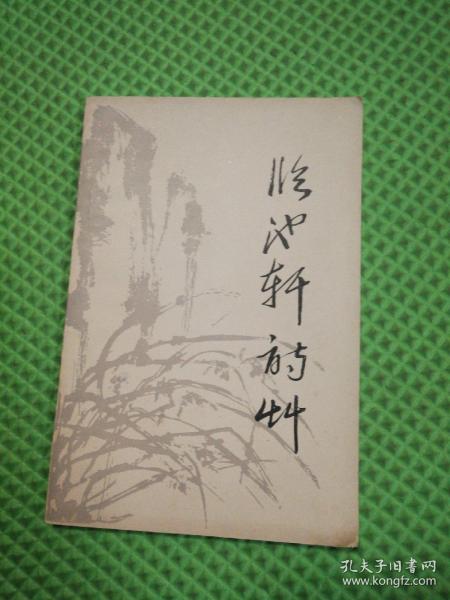 临池轩诗艸
孔夫子旧书网
www.kongfz.com